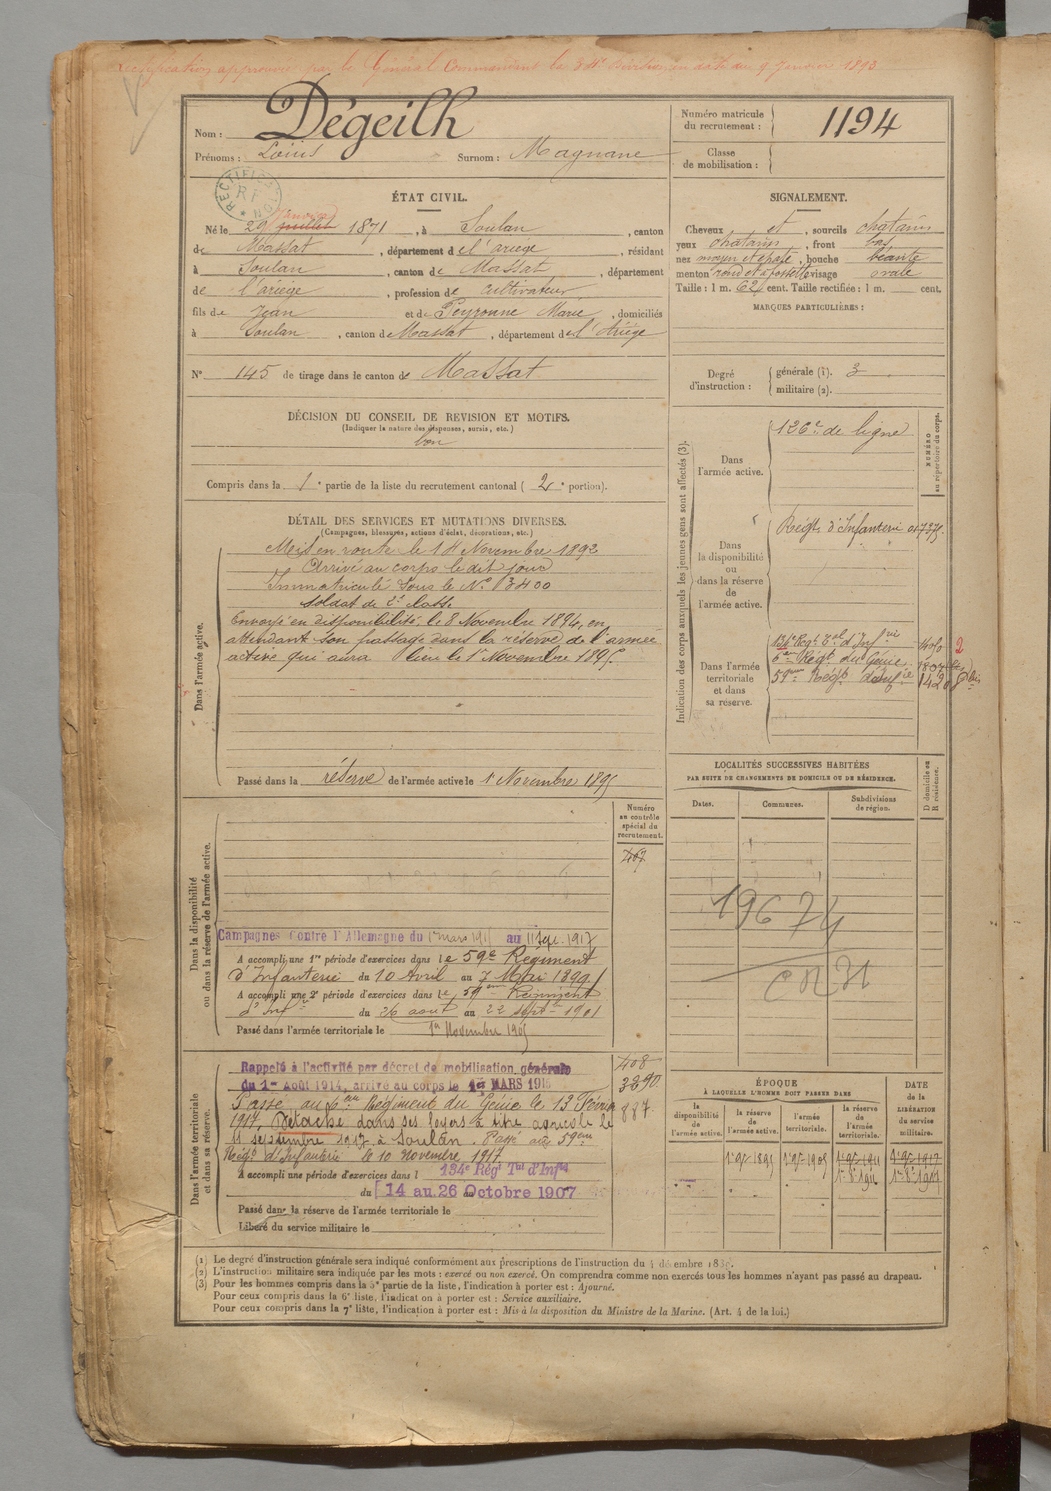 Rectification approuvée par le Général Commandant la 34e Division en date du 9 Janvier 1893
Nom : Dégeilh
Prénoms : Loüis Surnom : Magnane
Numéro matricule du recrutement : 1194
Classe de mobilisation :
RECTIFICATION RF
ÉTAT CIVIL.
Janvier
Né le 29 juillet 1871, à Soulan, canton
de Massat, département de l'ariège, résidant
à Soulan, canton de Massat, département
de l'ariège, profession de cultivateur
fils de Jean et de Peyronne Marie, domiciliés
à Soulan, canton de Massat, département de l'Ariège
N° 145 de tirage dans le canton de Massat
SIGNALEMENT.
Cheveux et, sourcils chatains
yeux chatains, front bas
nez moyen et épaté, bouche béante
menton rond et à fossette visage ovale
Taille : 1 m. 624 cent. Taille rectifiée : 1 m. cent.
MARQUES PARTICULIÈRES :
Degré d'instruction : générale (1). 3
militaire (2).
DÉCISION DU CONSEIL DE REVISION ET MOTIFS.
(Indiquer la nature des dispenses, sursis, etc.)
bon
Compris dans la 1e partie de la liste du recrutement cantonal (2e portion).
DÉTAIL DES SERVICES ET MUTATIONS DIVERSES.
(Campagnes, blessures, actions d'éclat, décorations, etc.)
Dans l'armée active.
Mis en route le 14 Novembre 1892
Arrivé au corps le dit jour
Immatriculé sous le N° 3400
soldat de 2e classe
Envoyé en disponibilité le 8 Novembre 1894, en
attendant son passage dans la réserve de l'armée
active qui aura lieu le 1er Novembre 1895.
Passé dans la réserve de l'armée active le 1er Novembre 1895
Indication des corps auxquels les jeunes gens sont affectés (3).
NUMÉRO au répertoire du corps.
Dans l'armée active.
126e de ligne
Dans la disponibilité ou dans la réserve de l'armée active.
Régt d'Infanterie
Dans l'armée territoriale et dans sa réserve.
134e Regt Tal d'Infie
6eme Régt du Génie
59eme Régt d'Infie
LOCALITÉS SUCCESSIVES HABITÉES
PAR SUITE DE CHANGEMENTS DE DOMICILE OU DE RÉSIDENCE.
D domicile ou R résidence.
Dates. Communes. Subdivisions de région.
19674
Dans la disponibilité ou dans la réserve de l'armée active.
Numéro au contrôle spécial du recrutement.
467
Campagnes Contre l'Allemagne du 1er mars 1915 au 11 sept. 1917
A accompli une 1re période d'exercices dans le 59e Régiment
d'Infanterie du 10 Avril au 7 Mai 1899
A accompli une 2e période d'exercices dans le 59eme Régiment
d'Infie du 26 août au 22 septre 1901
Passé dans l'armée territoriale le 1er Novembre 1905
Dans l'armée territoriale et dans sa réserve.
408
3290
887
Rappelé à l'activité par décret de mobilisation générale
du 1er Août 1914, arrivé au corps le 1er MARS 1915
Passé au 6eme Régiment du Génie le 13 Février
1917. Détaché dans ses foyers à titre agricole le
11 septembre 1917 à Soulan. Passé au 59eme
Régt d'Infanterie le 10 novembre 1917
A accompli une période d'exercices dans l 134e Régt Tal d'Infie
du 14 au 26 Octobre 1907
Passé dans la réserve de l'armée territoriale le
Libéré du service militaire le
ÉPOQUE
À LAQUELLE L'HOMME DOIT PASSER DANS
la disponibilité de l'armée active. la réserve de l'armée active. l'armée territoriale. la réserve de l'armée territoriale.
DATE DE LA LIBÉRATION du service militaire.
1er 9bre 1895 1er 9bre 1905 1er 9bre 1911 1er 9bre 1917
(1) Le degré d'instruction générale sera indiqué conformément aux prescriptions de l'instruction du 4 décembre
(2) L'instruction militaire sera indiquée par les mots : exercé ou non exercé. On comprendra comme non exercés tous les hommes n'ayant pas passé au drapeau.
(3) Pour les hommes compris dans la 5e partie de la liste, l'indication à porter est : Ajourné.
Pour ceux compris dans la 6e liste, l'indication à porter est : Service auxiliaire.
Pour ceux compris dans la 7e liste, l'indication à porter est : Mis à la disposition du Ministre de la Marine. (Art. 4 de la loi.)